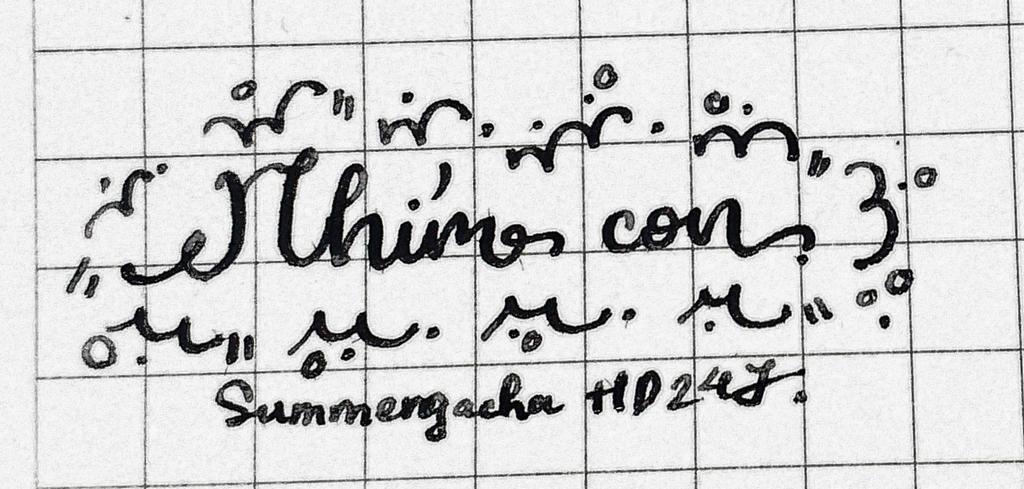 Nhím con
Summengacha HD247.